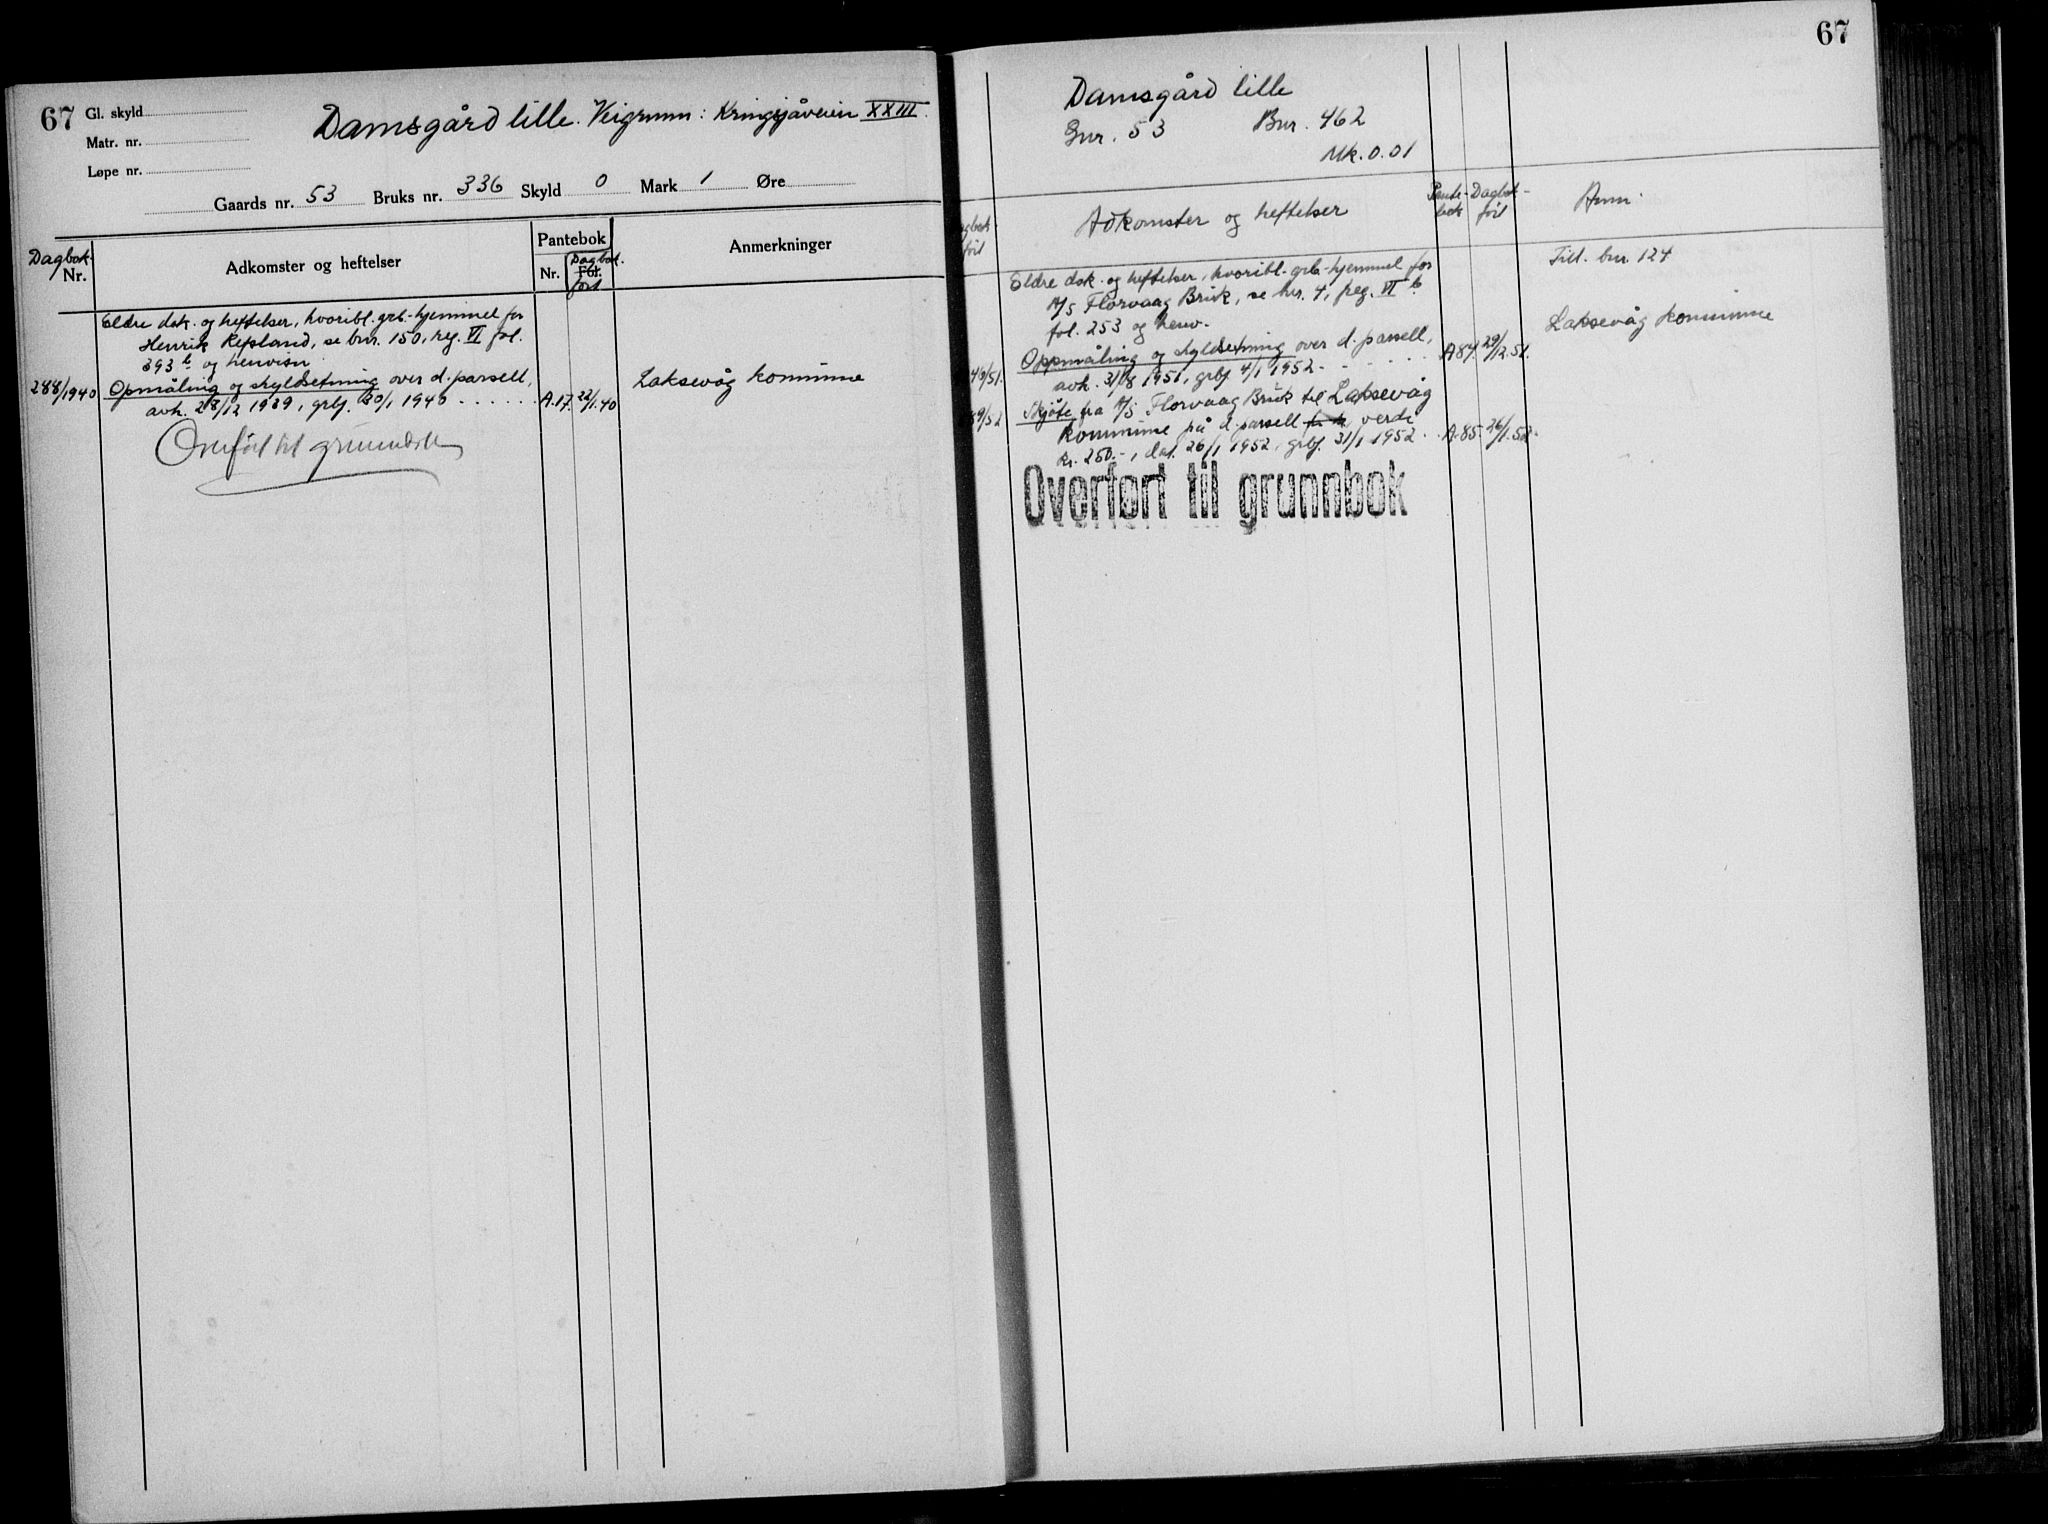 67
Gl. skyld
Matr. nr.
Løpe nr.
Damsgård lille. Veigrunn: Kringsjåveien XXIII.
Gaards nr. 53 Bruks nr. 336 Skyld 0 Mark 1 Øre
Dagbok. Nr.
Adkomster og heftelser
Pantebok
Nr.
Fol.
Dagbok. ført
Anmerkninger
Eldre dok. og heftelser, hvoribl. grb-hjemmel for
Henrik Refsland, se bnr. 150, reg. VI fol.
393 b og henvisn.
288/1940 Opmåling og skyldsetning over d. parsell,
avh. 28/12 1939, grbf. 30/1 1940 . . . . . . A.17. 22/1.40
Laksevåg kommune
Overført til grunnbok
67
Damsgård lille
Gnr. 53 Bnr. 462
Mk. 0.01
Adkomster og heftelser
Pante-bok
Dagbok-ført
Anm.
Eldre dok. og heftelser, hvoribl. grb-hjemmel for
A/S Florvaag Bruk, se bnr. 4, reg. VI b
fol. 253 og henv.
Till. bnr. 124
Laksevåg kommune
46/51. Oppmåling og skyldsetning over d. parsell,
avh. 31/8 1951, grbf. 4/1 1952 . . . . . . A84. 29/12.51.
89/52 Skjøte fra A/S Florvaag Bruk til Laksevåg
kommune på d. parsell verdi
kr. 250.-, dat. 26/1 1952, grbf. 31/1 1952 . . A.85. 26/1.52.
Overført til grunnbok